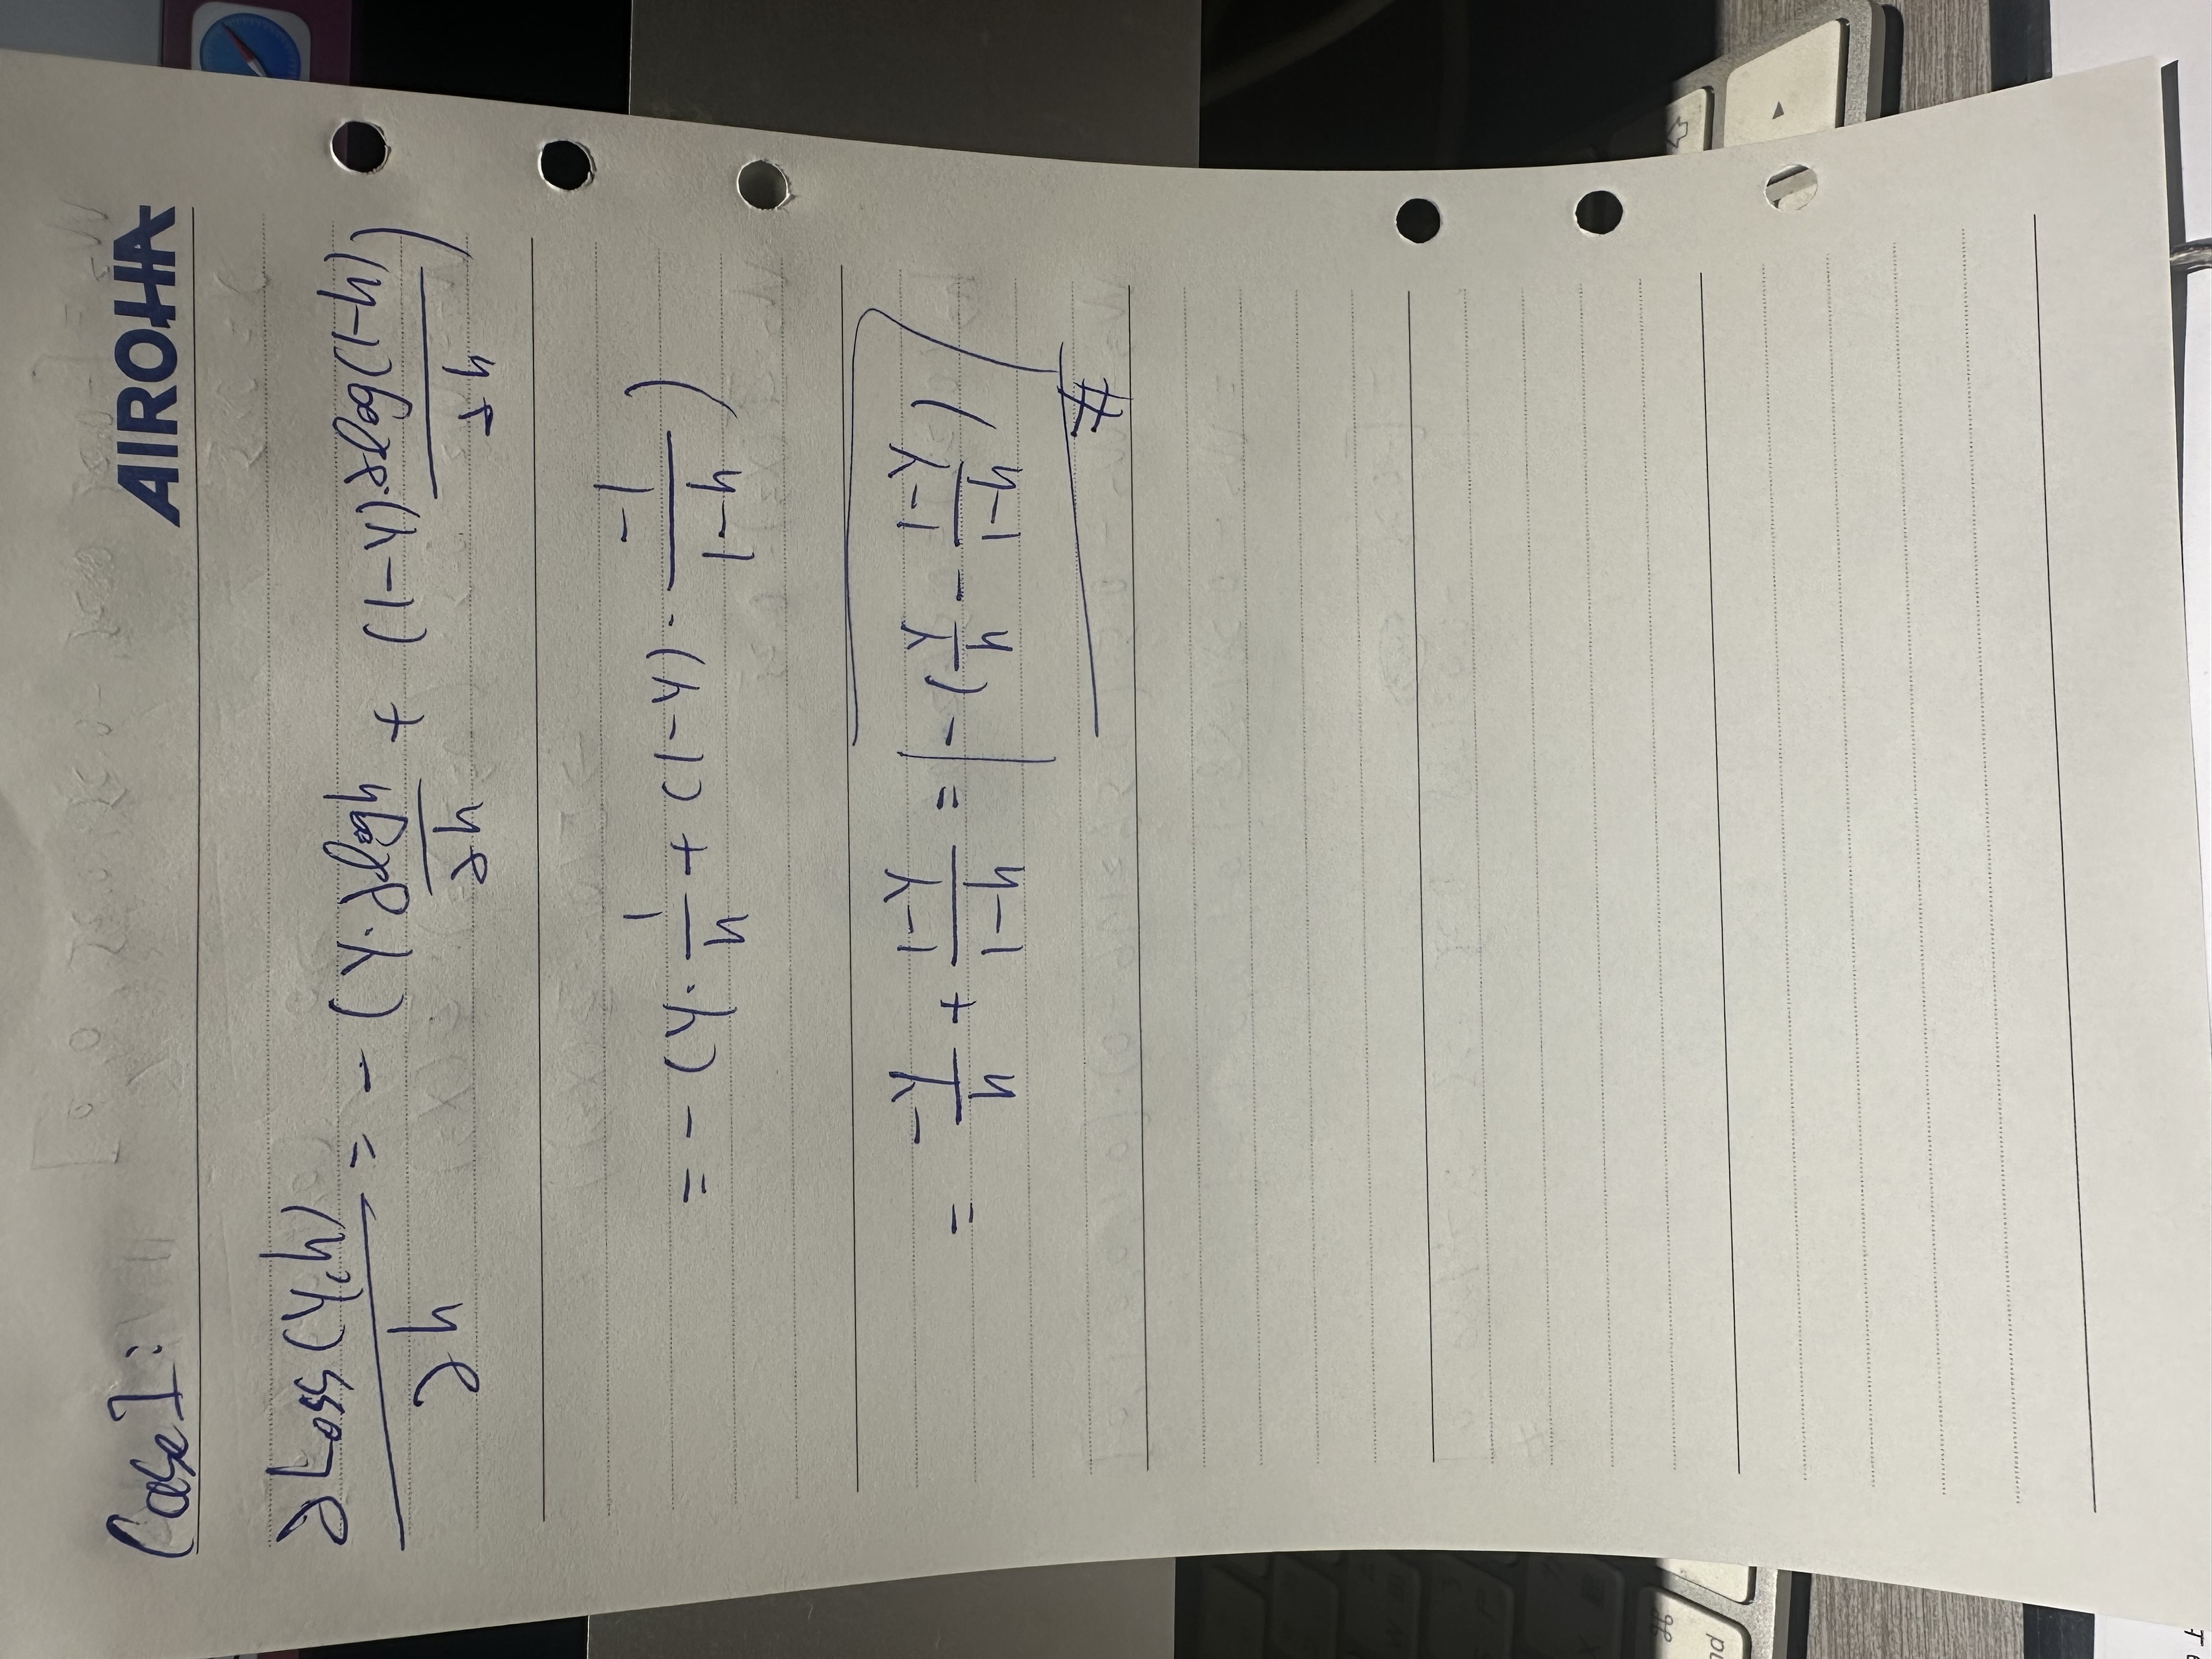 Case 1:
AIROHA
∂Loss(y,h) / ∂h = -(y·∂logh/∂h + (1-y)·∂log(1-h)/∂h)
= -(y·1/h + (1-y)·-1/(1-h))
= -y/h + (1-y)/(1-h) = -(y/h - (1-y)/(1-h))
#
⌘
nd